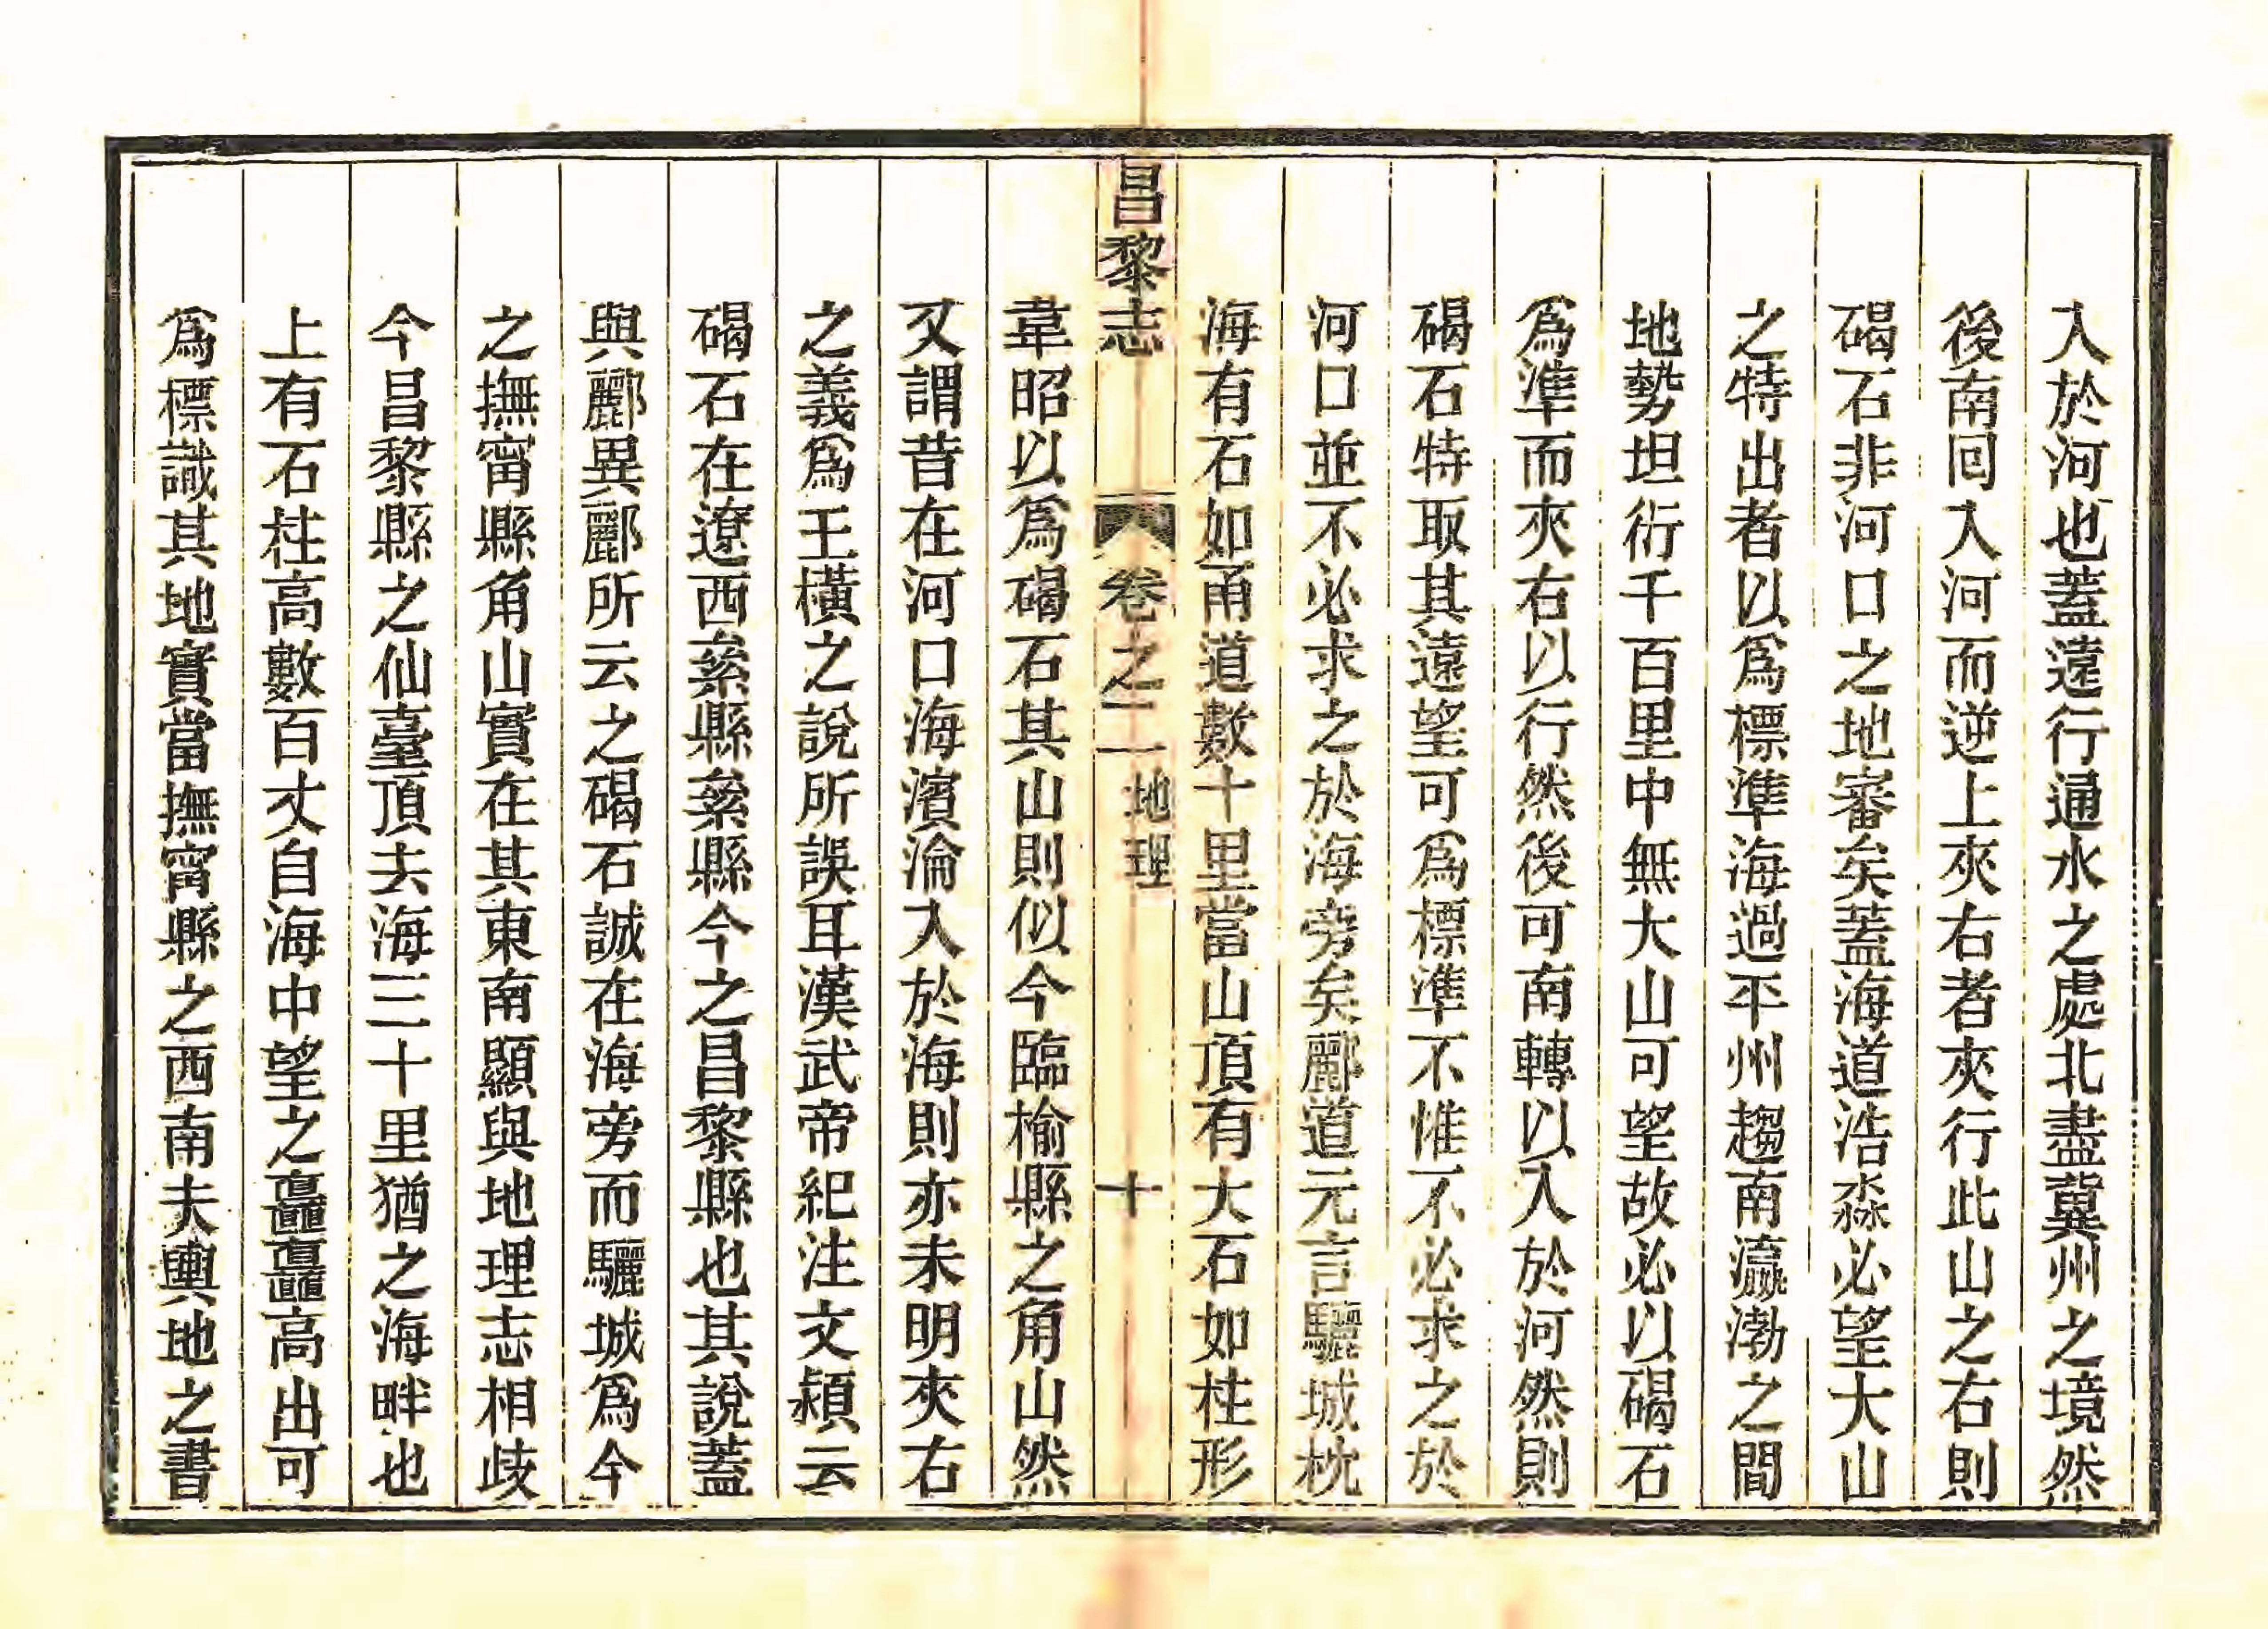 入於河也蓋遠行通水之處北盡冀州之境然
後南回入河而逆上夾右者夾行此山之右則
碣石非河口之地審矣蓋海道浩淼必望大山
之特出者以爲標準海過平州趨南瀛渤之間
地勢坦衍千百里中無大山可望故必以碣石
爲準而夾右以行然後可南轉以入於河然則
碣石特取其遠望可爲標準不惟不必求之於
河口並不必求之於海旁矣酈道元言驪城枕
海有石如甬道數十里當山頂有大石如柱形
昌黎志 卷之二 地理 十
韋昭以爲碣石其山則似今臨榆縣之角山然
又謂昔在河口海濱淪入於海則亦未明夾右
之義爲王橫之說所誤耳漢武帝紀注文潁云
碣石在遼西絫縣絫縣今之昌黎縣也其說蓋
與酈異酈所云之碣石誠在海旁而驪城爲今
之撫甯縣角山實在其東南顯與地理志相歧
今昌黎縣之仙臺頂去海三十里猶之海畔也
上有石柱高數百丈自海中望之矗矗高出可
爲標識其地實當撫甯縣之西南夫輿地之書